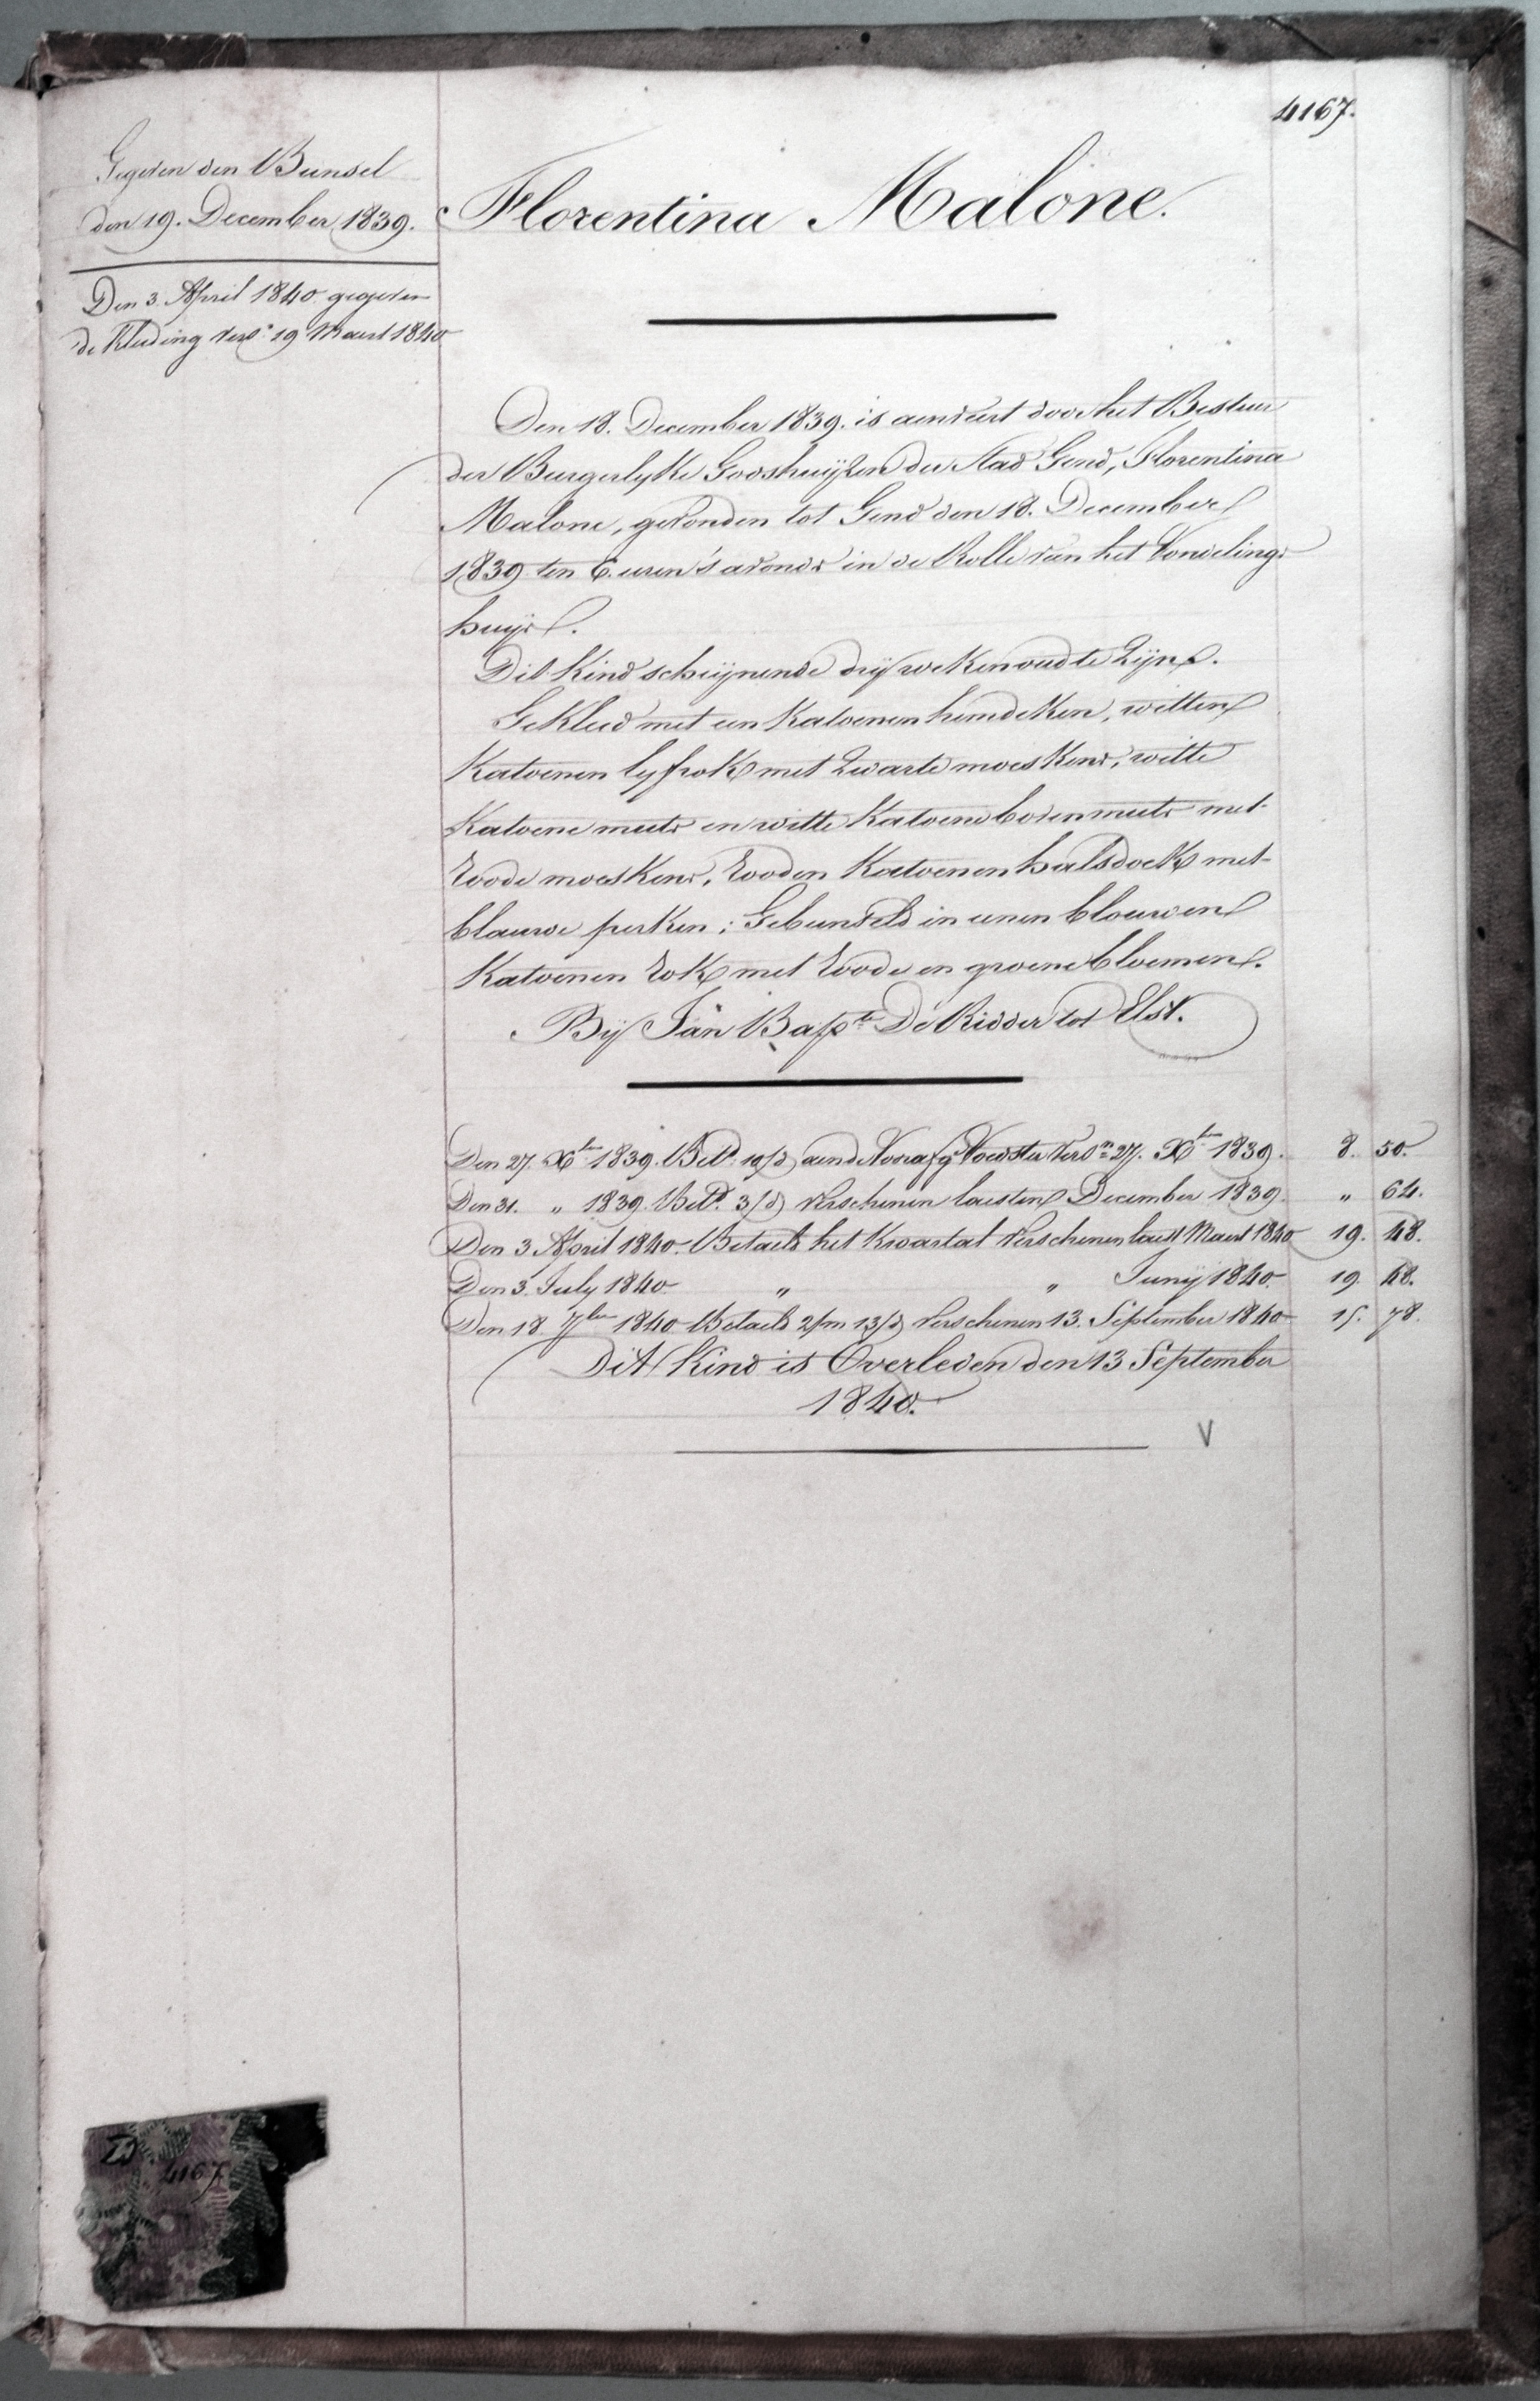 4167.
Gegeven den Bunsel
den 19. December 1839.
Den 3. April 1840 gegeven
de Kleeding vers.n 19 Maert 1840
Florentina Malone.
Den 18. December 1839. is aenveert door het Bestuur
der Burgerlyke Godshuijzen der Stad Gend, Florentina
Malone, gevonden tot Gend den 18. December
1839 ten 6. uren 's avonds in de Rolle van het Vondelings
huijs.
Dit kind schijnende drij weken oud te zijn.
Gekleed met een katoenen hemdeken, witten
katoenen lyfrok met zwarte moeskens, witte
katoene muts en witte katoene bovenmuts met
roode moeskens, rooden katoenen halsdoek met
blauwe perken; Gebunseld in eenen blauwen
katoenen rok met roode en groene bloemen.
Bij Jan Bapte De Ridder tot Elst.
Den 27. Xber 1839. Betd. 10/d aen de Voorafg. Voedster versn 27. Xber 1839. 8. 50.
Den 31. " 1839. Betd. 3/d verschenen laesten December 1839. " 64.
Den 3 April 1840. Betaeld het Kwartal verschenen laest Maert 1840 19. 48.
Den 3. July 1840. " " Junij 1840. 19. 48.
Den 18. 7ber 1840. Betaeld 2/m 13/d verschenen 13. September 1840. 15. 78.
Dit Kind is Overleden den 13 September
1840.
V
4167